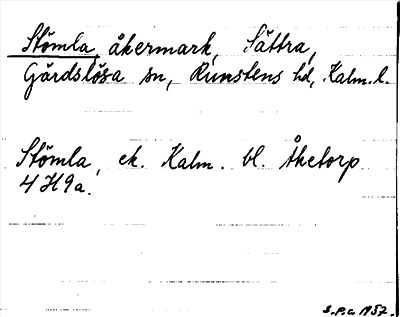 Stömla, åkermark, Sättra,
Gärdslösa sn, Runstens hd, Kalm. l.
Stömla, ek. Kalm. bl. Åketorp
4 H 9 a.
S.P.a. 1957.